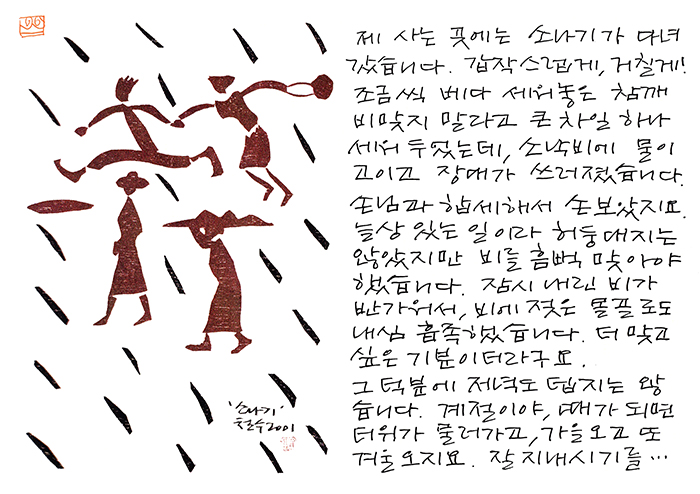 제 사는 곳에는 소나기가 다녀
갔습니다. 갑작스럽게, 거칠게!
조금씩 베다 세워놓은 참깨
비맞지 말라고 큰 차일 하나
세워 두었는데, 소낙비에 물이
고이고 장대가 쓰러졌습니다.
손님과 합세해서 손보았지요.
늘상 있는 일이라 허둥대지는
않았지만 비를 흠뻑 맞아야
했습니다. 잠시 내린 비가
반가워서, 비에 젖은 몰골로도
내심 흡족했습니다. 더 맞고
싶은 기분이더라구요.
그 덕분에 저녁도 덥지는 않
습니다. 계절이야, 때가 되면
더위가 물러가고, 가을 오고 또
겨울 오지요. 잘 지내시기를…
'소나기'
철수 2001